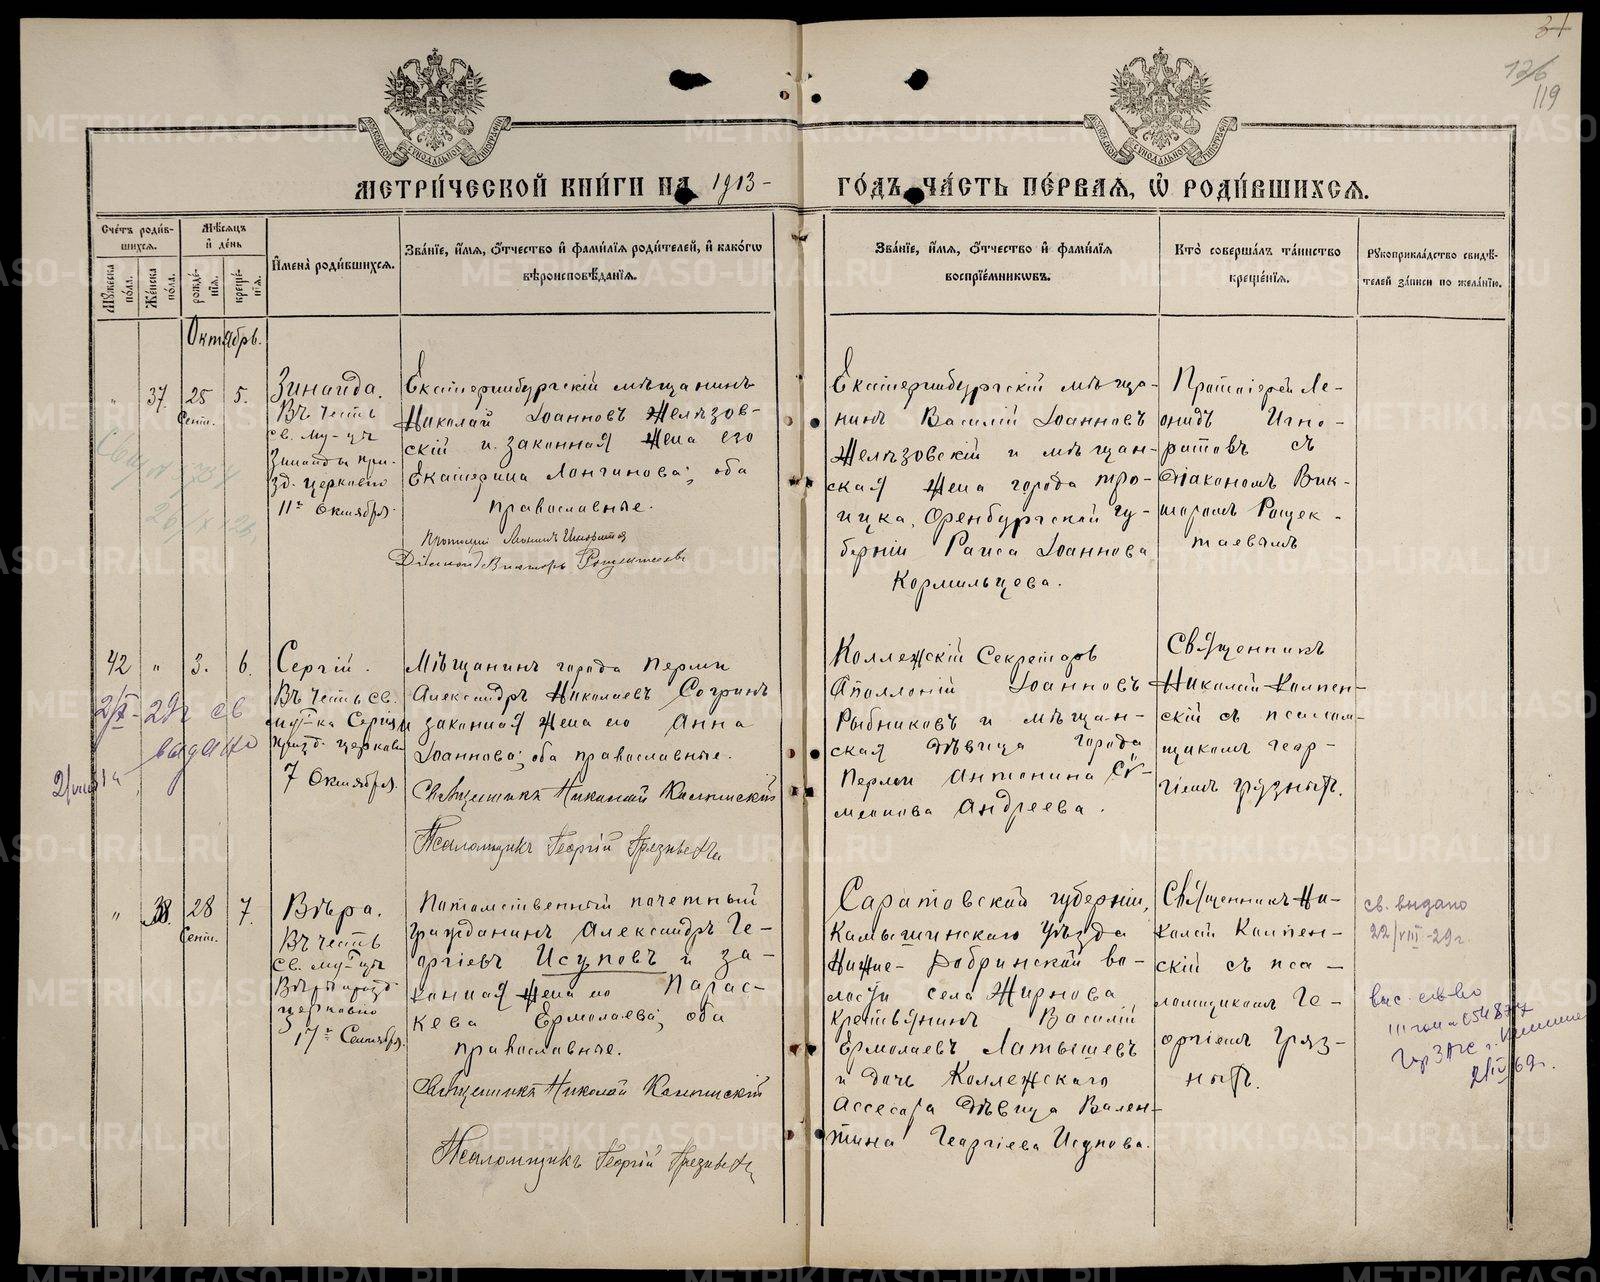 31
126
119
МЕТРИ́ЧЕСКОЙ КНИ́ГИ НА 1913 -
ГО́ДЪ ЧА́СТЬ ПЕ́РВАЯ, Ѡ҆ РОДИ́ВШИХСЯ.
Сче́тъ роди́в-
шихся.
Мѣ́сяцъ
и҆ де́нь
Му́жеска по́ла.
Же́нска по́ла.
рожде́-
нїя.
креще́-
нїя.
И҆мена̀ роди́вшихся.
Зва́нїе, и҆́мя, ѻ҆́тчество и҆ фами́лїя роди́телей, и҆ како́гѡ
вѣроисповѣ́данїя.
Зва́нїе, и҆́мя, ѻ҆́тчество и҆ фами́лїя
воспрїе́мникѡвъ.
Кто̀ соверша́лъ та́инство
креще́нїя.
Рукоприкла́дство свидѣ́-
телей за́писи по жела́нїю.
Октябрь.
" 37. 25 5.
Сент.
Зинаида.
Въ честь
св. му-цы
Зинаиды пра-
зд. церковію
11го Октября.
Екатеринбургскій мѣщанинъ
Николай Іоанновъ Желѣзов-
скій и законная жена его
Екатерина Лонгинова; оба
православные.
Протоіерей Леонидъ Игноратовъ
Діаконъ Викторъ Рощектаевъ
Екатеринбургскій мѣща-
нинъ Василій Іоанновъ
Желѣзовскій и мѣщан-
ская жена города Тро-
ицка, Оренбургской гу-
берніи Раиса Іоаннова
Кормильцева.
Протоіерей Ле-
онидъ Игно-
ратовъ съ
діакономъ Вик-
торомъ Рощек-
таевымъ
42 " 3. 6.
2/X - 29г св
выдано
Сергій.
Въ честь св.
му-ка Сергія
празд. церков.
7 Октября.
Мѣщанинъ города Перми
Александръ Николаевъ Согринъ
и законная жена его Анна
Іоаннова; оба православные.
Священникъ Николай Колпенскій
Псаломщикъ Георгій Грязныхъ
Коллежскій Секретарь
Аполлоній Іоанновъ
Рыбниковъ и мѣщан-
ская дѣвица города
Перми Антонина Сѵ-
меонова Андреева.
Священникъ
Николай Колпен-
скій съ псалом-
щикомъ Геор-
гіемъ Грязныхъ.
" 38. 28 7.
Сент.
Вѣра.
Въ честь
св. му-цы
Вѣры празд.
церковію
17го Сентября.
Потомственный почетный
гражданинъ Александръ Ге-
оргіевъ Исуповъ и за-
конная жена его Парас-
кева Ермолаева; оба
православные.
Священникъ Николай Колпенскій
Псаломщикъ Георгій Грязныхъ
Саратовской губерніи,
Камышинскаго уѣзда
Нижне-Добринской во-
лости села Жирнова
крестьянинъ Василій
Ермолаевъ Латышевъ
и дочь Коллежскаго
Ассесора дѣвица Вален-
тина Георгіева Исупова.
Священникъ Ни-
колай Колпен-
скій съ пса-
ломщикомъ Ге-
оргіемъ Гряз-
ныхъ.
св. выдано
22/VIII-29г.
METRIKI.GASO-URAL.RU